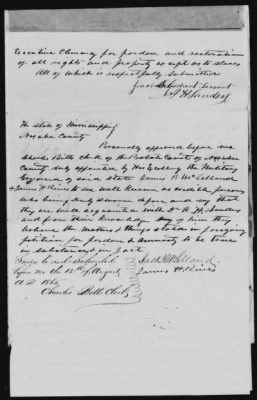 Executive Clemency for pardon and restoration
of all rights and property except as to slaves
All of which is respectfully submitted
your Obedient Servant
R H Sanders
The State of Mississippi
Noxubee County
Personally appeared before me
Charles Bett Clerk of the Probate Court of Noxubee
County duly appointed by His Excellency the Military
Governor of said State James R McLelland
& James H Rives to me well known as credible persons
who being duly sworn depose and say that
they are well acquainted with Dr R. H. Sanders
and from their knowledge of him they
believe the matters & things stated in foregoing
petition for pardon & Amnesty to be true
in substance and in fact
Sworn to and subscribed
before me the 12th of August
A D 1865
Charles Bett Clerk
Jas R McLelland
James H Rives